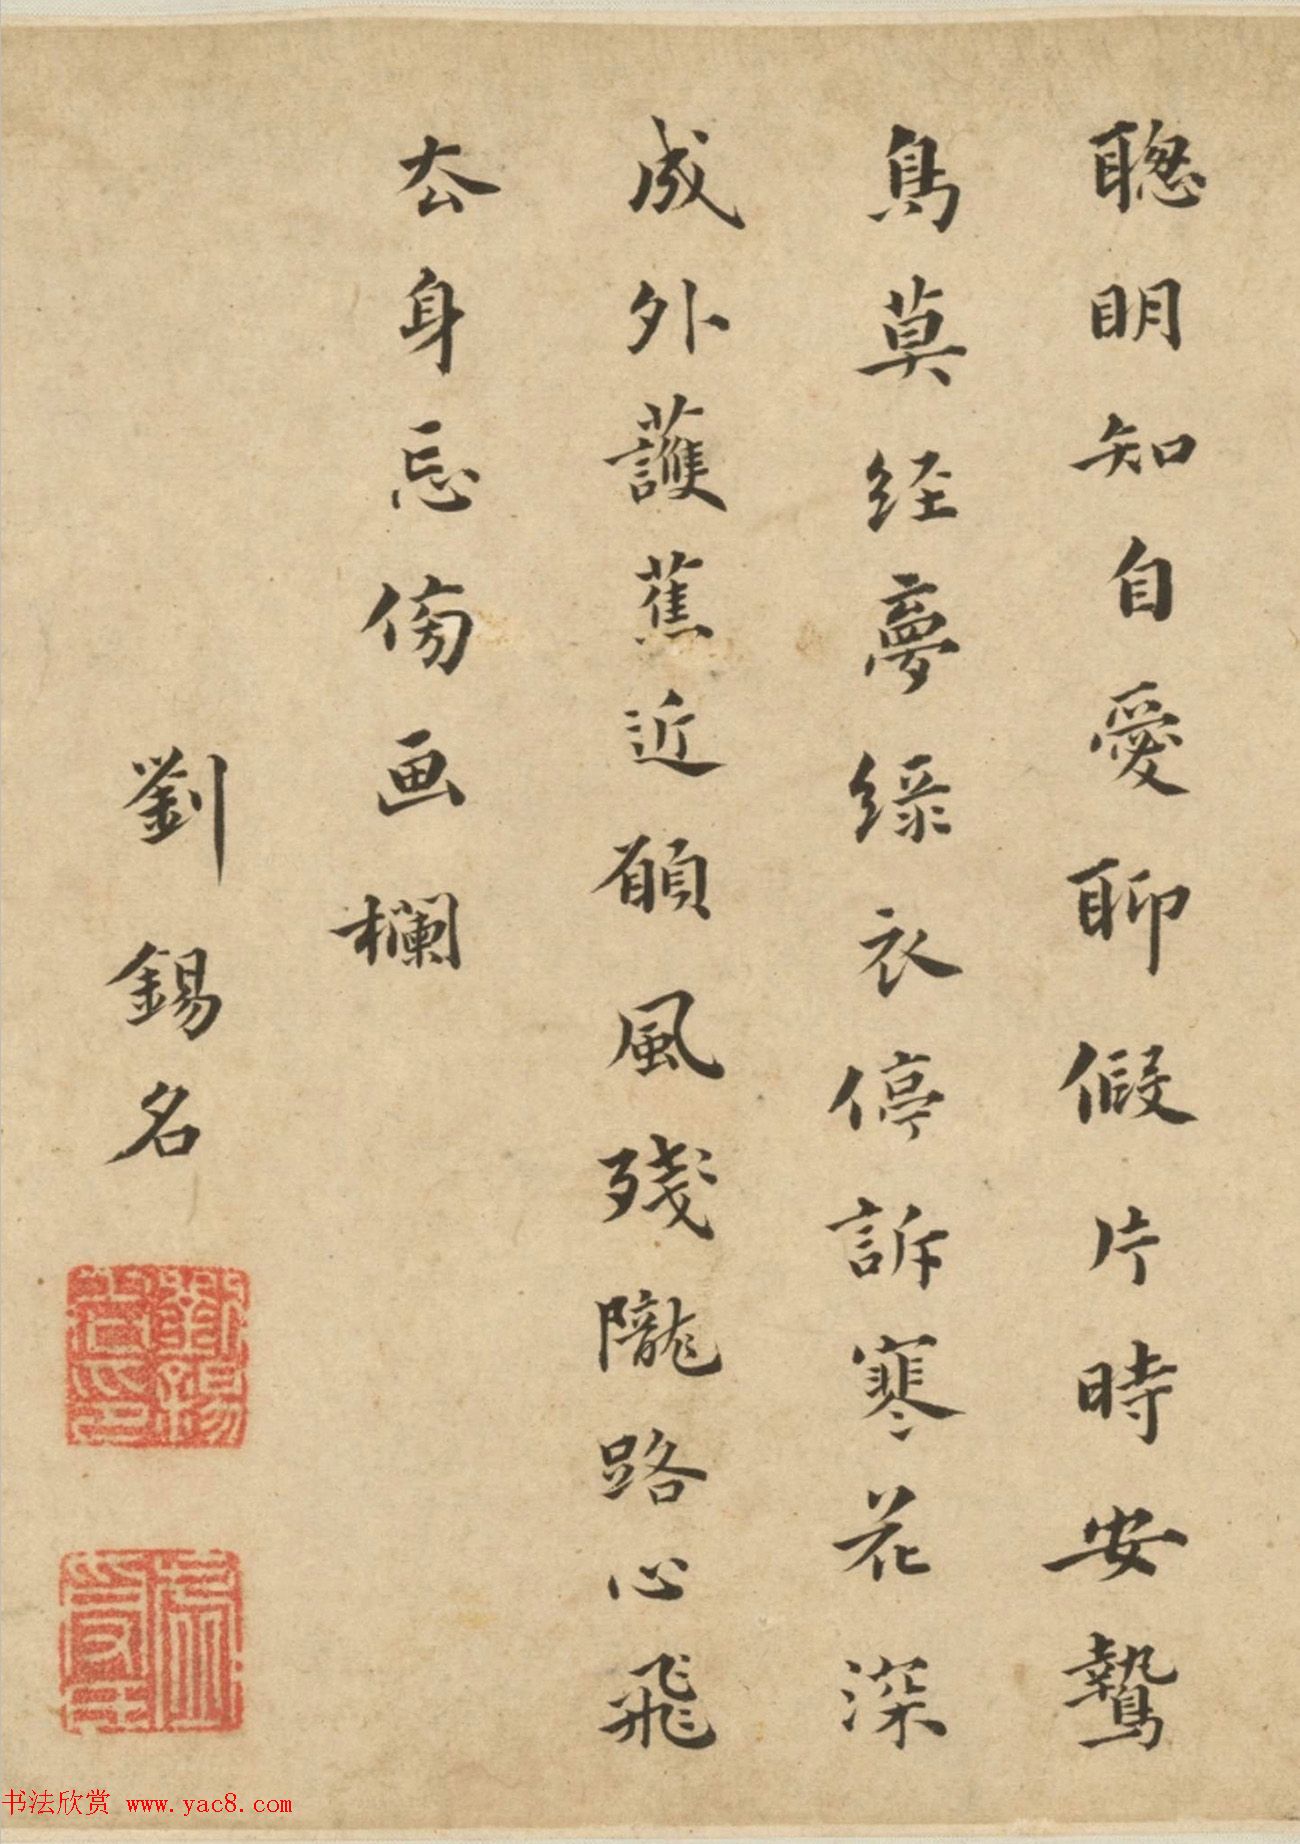 聰明知自愛聊假片時安鷙
鳥莫經夢綠衣停訴寒花深
成外護蕉近願風殘隴路心飛
厺身忘傍画欄
劉錫名
书法欣赏 www.yac8.com